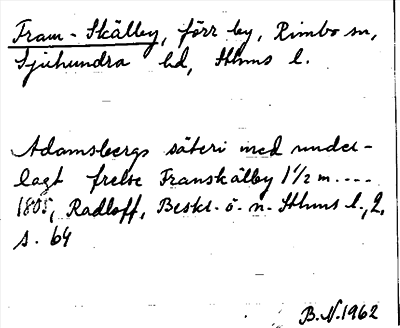 Fram-Skälby, förr by, Rimbo sn,
Sjuhundra hd, Sthms l.
Adamsbergs säteri med under-
lagt frelse Franskälby 1 1/2 m....
1805, Radloff, Beskr. ö. n. Sthms l., 2,
s. 64
B.N. 1962